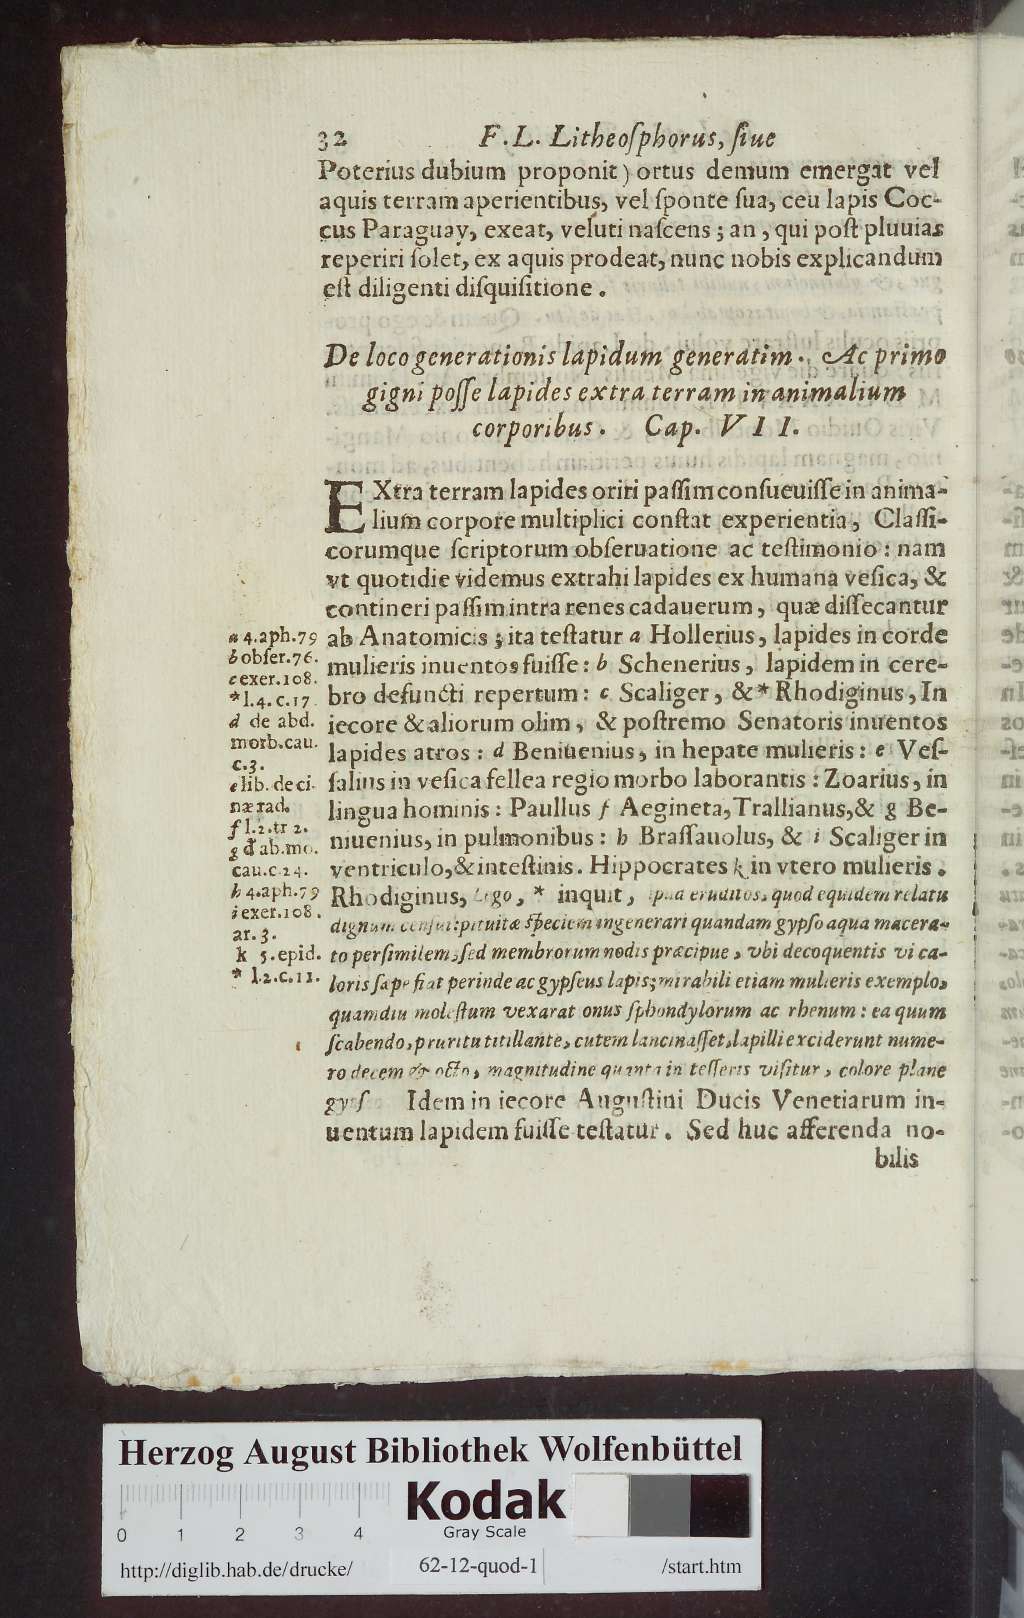 32 F. L. Litheoſphorus, ſiue
Poterius dubium proponit) ortus demum emergat vel
aquis terram aperientibus, vel ſponte ſua, ceu lapis Coc-
cus Paraguay, exeat, veluti naſcens; an, qui poſt pluuias
reperiri ſolet, ex aquis prodeat, nunc nobis explicandum
eſt diligenti diſquiſitione.
De loco generationis lapidum generatim. Ac primo
gigni poſſe lapides extra terram in animalium
corporibus. Cap. VII.
EXtra terram lapides oriri paſſim conſueuiſſe in anima-
lium corpore multiplici conſtat experientia, Claſſi-
corumque ſcriptorum obſeruatione ac teſtimonio: nam
vt quotidie videmus extrahi lapides ex humana veſica, &
contineri paſſim intra renes cadauerum, quæ diſſecantur
ab Anatomicis; ita teſtatur a Hollerius, lapides in corde
mulieris inuentos fuiſſe: b Schenerius, lapidem in cere-
bro defuncti repertum: c Scaliger, & * Rhodiginus, In
iecore & aliorum olim, & poſtremo Senatoris inuentos
lapides atros: d Beniuenius, in hepate mulieris: e Veſ-
ſalius in veſica fellea regio morbo laborantis: Zoarius, in
lingua hominis: Paullus f Aegineta, Trallianus, & g Be-
niuenius, in pulmonibus: h Braſſauolus, & i Scaliger in
ventriculo, & inteſtinis. Hippocrates k in vtero mulieris.
Rhodiginus, Lego, * inquit, apud eruditos, quod equidem relatu
dignum cenſui: pituitæ ſpeciem ingenerari quandam gypſo aqua macera-
to perſimilem, ſed membrorum nodis præcipue, vbi decoquentis vi ca-
loris ſæpe fiat perinde ac gypſeus lapis; mirabili etiam mulieris exemplo,
quamdiu moleſtum vexarat onus ſphondylorum ac rhenum: ea quum
ſcabendo, pruritu titillante, cutem lancinaſſet, lapilli exciderunt nume-
ro decem & octo, magnitudine quanta in teſſeris viſitur, colore plane
gypſ Idem in iecore Auguſtini Ducis Venetiarum in-
uentum lapidem fuiſſe teſtatur. Sed huc afferenda no-
bilis
a 4. aph. 79
b obſer. 76.
c exer. 108.
* l. 4. c. 17
d de abd.
morb. cau.
c. 3.
e lib. de ci-
næ rad.
f l. 2. tr 2.
g d ab. mo.
cau. c. 24.
h 4. aph. 79
i exer. 108.
ar. 3.
k 5. epid.
* l. 2. c. 11.
Herzog August Bibliothek Wolfenbüttel
Kodak
Gray Scale
0 1 2 3 4
http://diglib.hab.de/drucke/ 62-12-quod-1 /start.htm